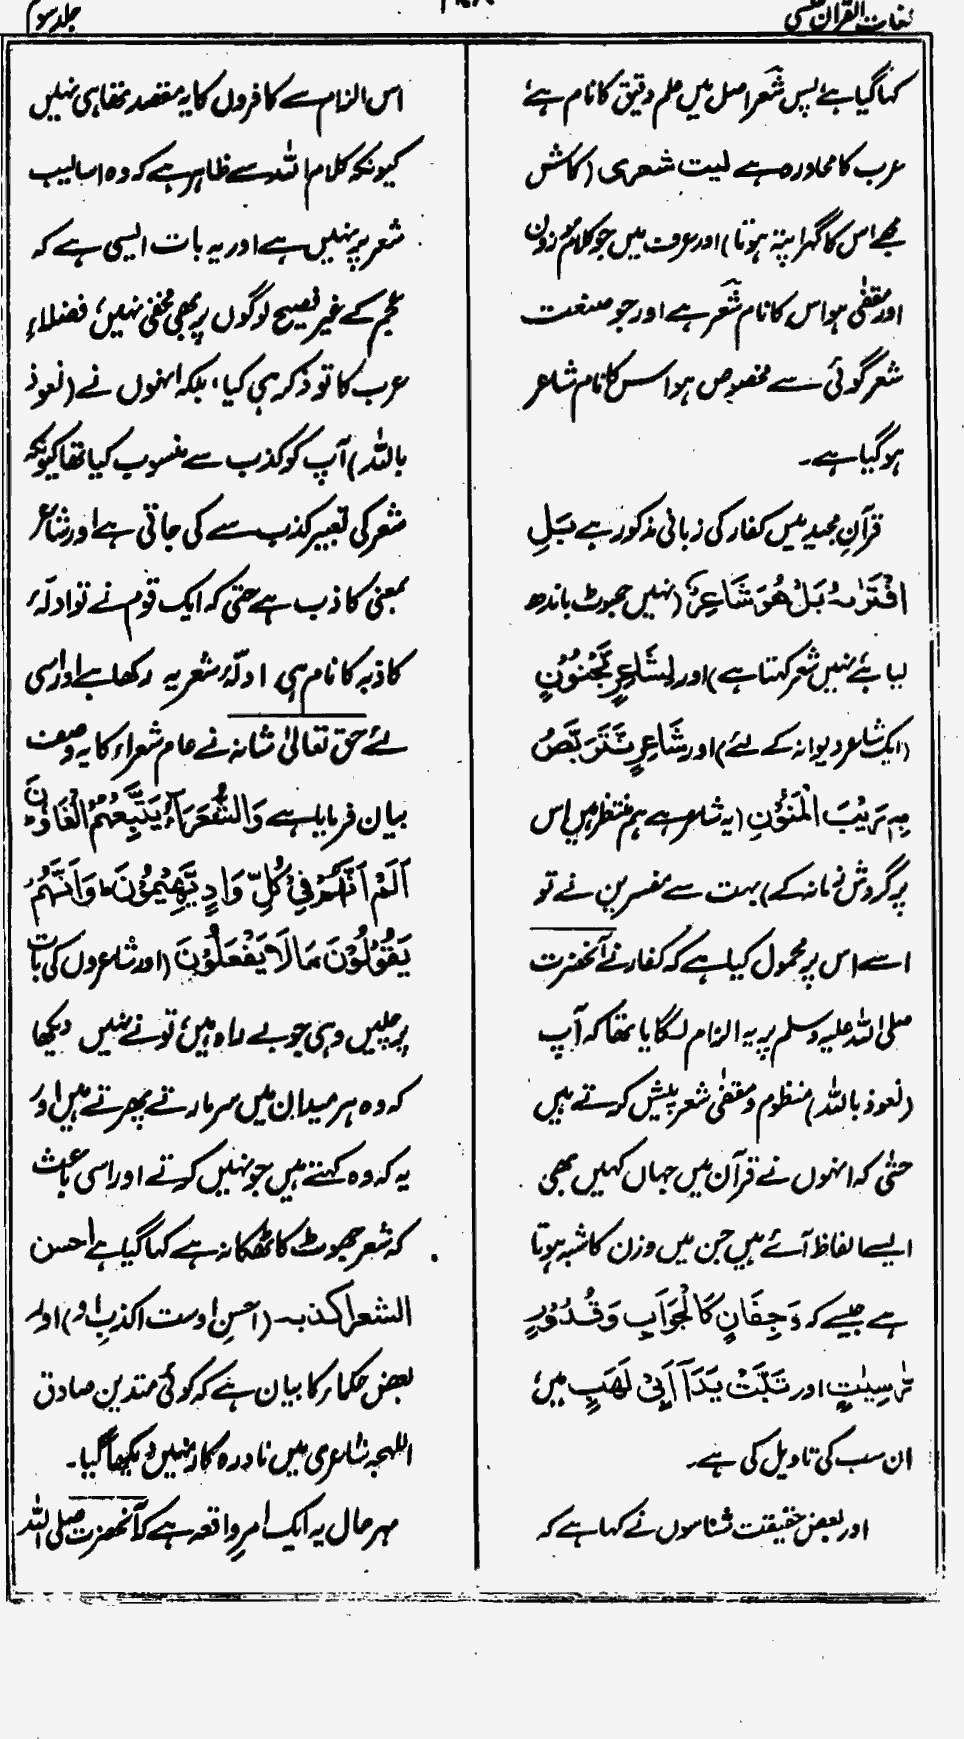 لغات القرآن
جلد سوم
کہا گیا ہے پس شعر اصل میں علم دقیق کا نام ہے
عرب کا محاورہ ہے لیت شعری (کاش
مجھے اس کا گہرا پتہ ہوتا) اور عرف میں جو کلام موزون
اور مقفّٰی ہو اس کا نام شعر ہے اور جو صنعت
شعر گوئی سے مخصوص ہو اس کا نام شاعر
ہو گیا ہے۔
قرآنِ مجید میں کفار کی زبانی مذکور ہے بَلِ
افْتَرٰىهُ بَلْ هُوَ شَاعِرٌ (نہیں جھوٹ باندھ
لیا ہے نہیں شعر کہتا ہے) اور لِشَاعِرٍ مَّجْنُوْنٍ
(ایک شاعر دیوانہ کے لئے) اور شَاعِرٍ نَّتَرَبَّصُ
بِهٖ رَيْبَ الْمَنُوْنِ (یہ شاعر ہے ہم منتظر ہیں اس
پر گردشِ زمانہ کے) بہت سے مفسرین نے تو
اسے اس پر محمول کیا ہے کہ کفار نے آنحضرت
صلی اللہ علیہ وسلم پر یہ الزام لگایا تھا کہ آپ
(نعوذ باللہ) منظوم و مقفٰی شعر پیش کرتے ہیں
حتٰی کہ انہوں نے قرآن میں جہاں کہیں بھی
ایسے الفاظ آئے ہیں جن میں وزن کا شبہ ہوتا
ہے جیسے کہ وَجِفَانٍ كَالْجَوَابِ وَقُدُوْرٍ
رّٰسِيٰتٍ اور تَبَّتْ يَدَآ اَبِيْ لَهَبٍ ہیں،
ان سب کی تاویل کی ہے۔
اور بعض حقیقت شناسوں نے کہا ہے کہ
اس الزام سے کافروں کا یہ مقصد تھا ہی نہیں
کیونکہ کلام اللہ سے ظاہر ہے کہ وہ اسالیب
شعر پر نہیں ہے اور یہ بات ایسی ہے کہ
عجم کے غیر فصیح لوگوں پر بھی مخفی نہیں، فضلاء
عرب کا تو ذکر ہی کیا، بلکہ انہوں نے (نعوذ
باللہ) آپ کو کذب سے منسوب کیا تھا کیونکہ
شعر کی تعبیر کذب سے کی جاتی ہے اور شاعر
بمعنی کاذب ہے حتی کہ ایک قوم نے تو ادلّہ
کاذبہ کا نام ہی ادلّہ شعریہ رکھا ہے اور اسی
لئے حق تعالیٰ شانہ نے عام شعراء کا یہ وصف
بیان فرمایا ہے وَالشُّعَرَآءُ يَتَّبِعُهُمُ الْغَاوٗنَ
اَلَمْ تَرَ اَنَّهُمْ فِيْ كُلِّ وَادٍ يَّهِيْمُوْنَ وَاَنَّهُمْ
يَقُوْلُوْنَ مَالَا يَفْعَلُوْنَ (اور شاعروں کی بات
پر چلیں وہی جو بے راہ ہیں، تو نے نہیں دیکھا
کہ وہ ہر میدان میں سر مارتے پھرتے ہیں اور
یہ کہ وہ کہتے ہیں جو نہیں کرتے اور اسی باعث
کہ شعر جھوٹ کا ٹھکانہ ہے کہا گیا ہے احسن
الشعر اکذبہ (احسنِ اوست اکذبِ او) اور
بعض حکماء کا بیان ہے کہ کوئی متدین صادق
اللہجہ شاعری میں نادرہ کار نہیں دیکھا گیا۔
بہرحال یہ ایک امرِ واقعہ ہے کہ آنحضرت صلی اللہ